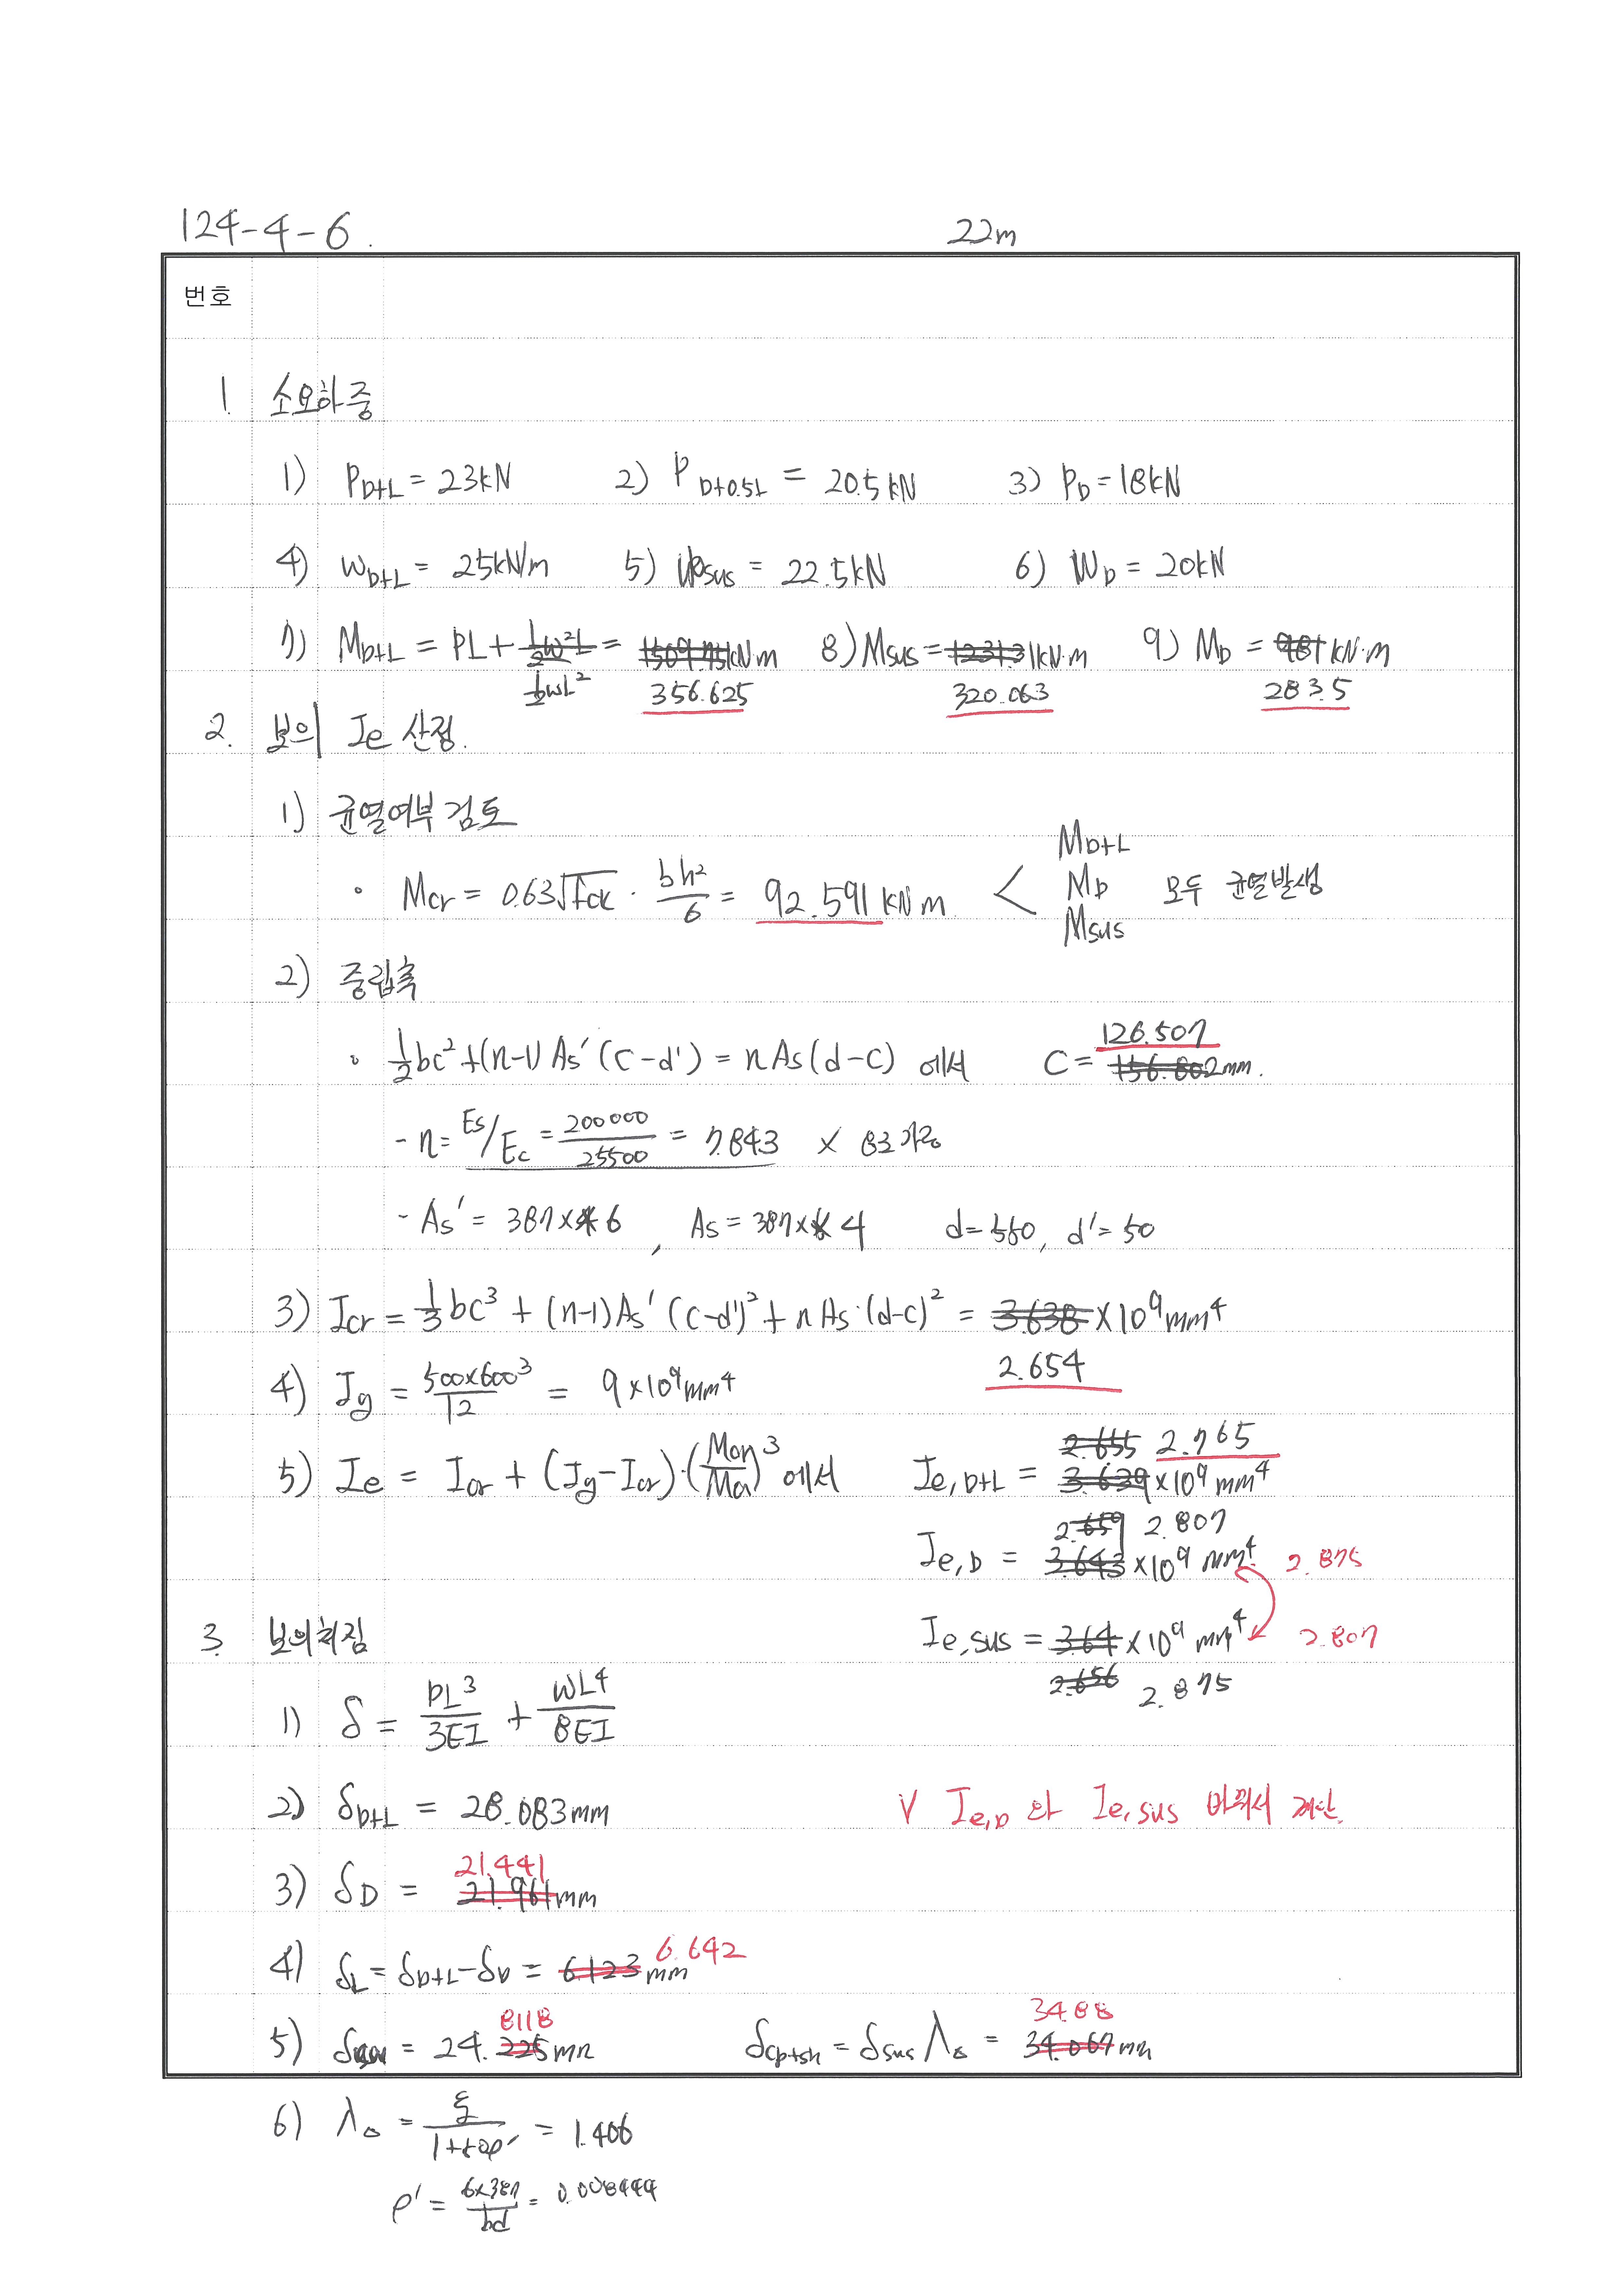 124-4-6.
22m
번호
1. 소요하중
1) P_{D+L} = 23kN 2) P_{D+0.5L} = 20.5kN 3) P_D = 18kN
4) W_{D+L} = 25kN/m 5) W_{sus} = 22.5kN 6) W_D = 20kN
7) M_{D+L} = PL + ½wL² = 356.625 kN·m 8) M_{sus} = 320.063 kN·m 9) M_D = 283.5 kN·m
2. 보의 Ie 산정.
1) 균열여부 검토
∘ Mcr = 0.63√fck · bh²/6 = 92.591 kN m < M_{D+L} M_D M_{sus} 모두 균열발생
2) 중립축
∘ ½bc² + (n-1)As'(c-d') = nAs(d-c) 에서 C = 126.507 mm.
- n = Es/Ec = 200000/25500 = 7.843 ×
- As' = 387×6, As = 387×4 d=550, d'=50
3) Icr = ⅓bc³ + (n-1)As'(c-d')² + nAs·(d-c)² = 2.654 ×10⁹mm⁴
4) Ig = 500×600³/12 = 9×10⁹mm⁴
5) Ie = Icr + (Ig-Icr)·(Mcr/Ma)³ 에서 I_{e,D+L} = 2.765 ×10⁹mm⁴
I_{e,D} = 2.807 ×10⁹ mm⁴ 2.875
I_{e,sus} = 2.875 ×10⁹ mm⁴ 2.807
3. 보의처짐
1) δ = PL³/3EI + WL⁴/8EI
2) δ_{D+L} = 28.083mm
∨ I_{e,D} 와 I_{e,sus} 바꿔서 계산.
3) δ_D = 21.441 mm
4) δ_L = δ_{D+L} - δ_D = 6.642 mm
5) = 24.8118 mm δ_{cp+sh} = δ_{sus} λ_Δ = 34.88 mm
6) λ_Δ = ξ/1+50ρ' = 1.406
ρ' = 6×387/bd = 0.008444